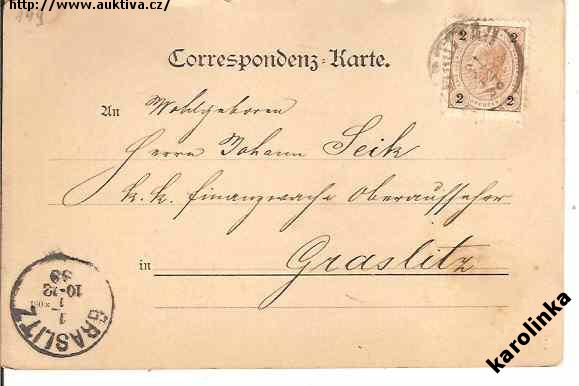 http://www.auktiva.cz/
149
Correspondenz-Karte.
2 2
2 2
An Wohlgeboren
Herrn Johann Seik
k. k. Finanzwache Oberaufseher
in Graslitz
GRASLITZ
1
1
10-12
98
karolinka